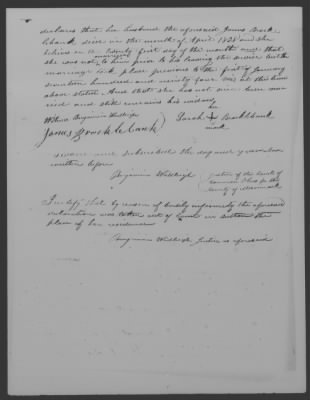 declares that her husband the aforesaid James Brock
lebank died in the month of April 1825 and she
believes on the twenty first day of the month and that
she was not married to him prior to his leaving the service but the
marriage took place previous to the first of January
seventeen hundred and ninety four viz at the time
above stated. And that she has not since been mar
ried and still remains his widow
Witness Benjamin
James Brocklebank
her
Sarah X Brocklebank
mark
sworn and subscribed the day and year above
written before
Benjamin
Justice of the Court of
Common Pleas for the
County of Merrimack
I certify that by reason of bodily infirmity the aforesaid
declaration was taken out of Court in the
place of her residence
Benjamin Justice as aforesaid